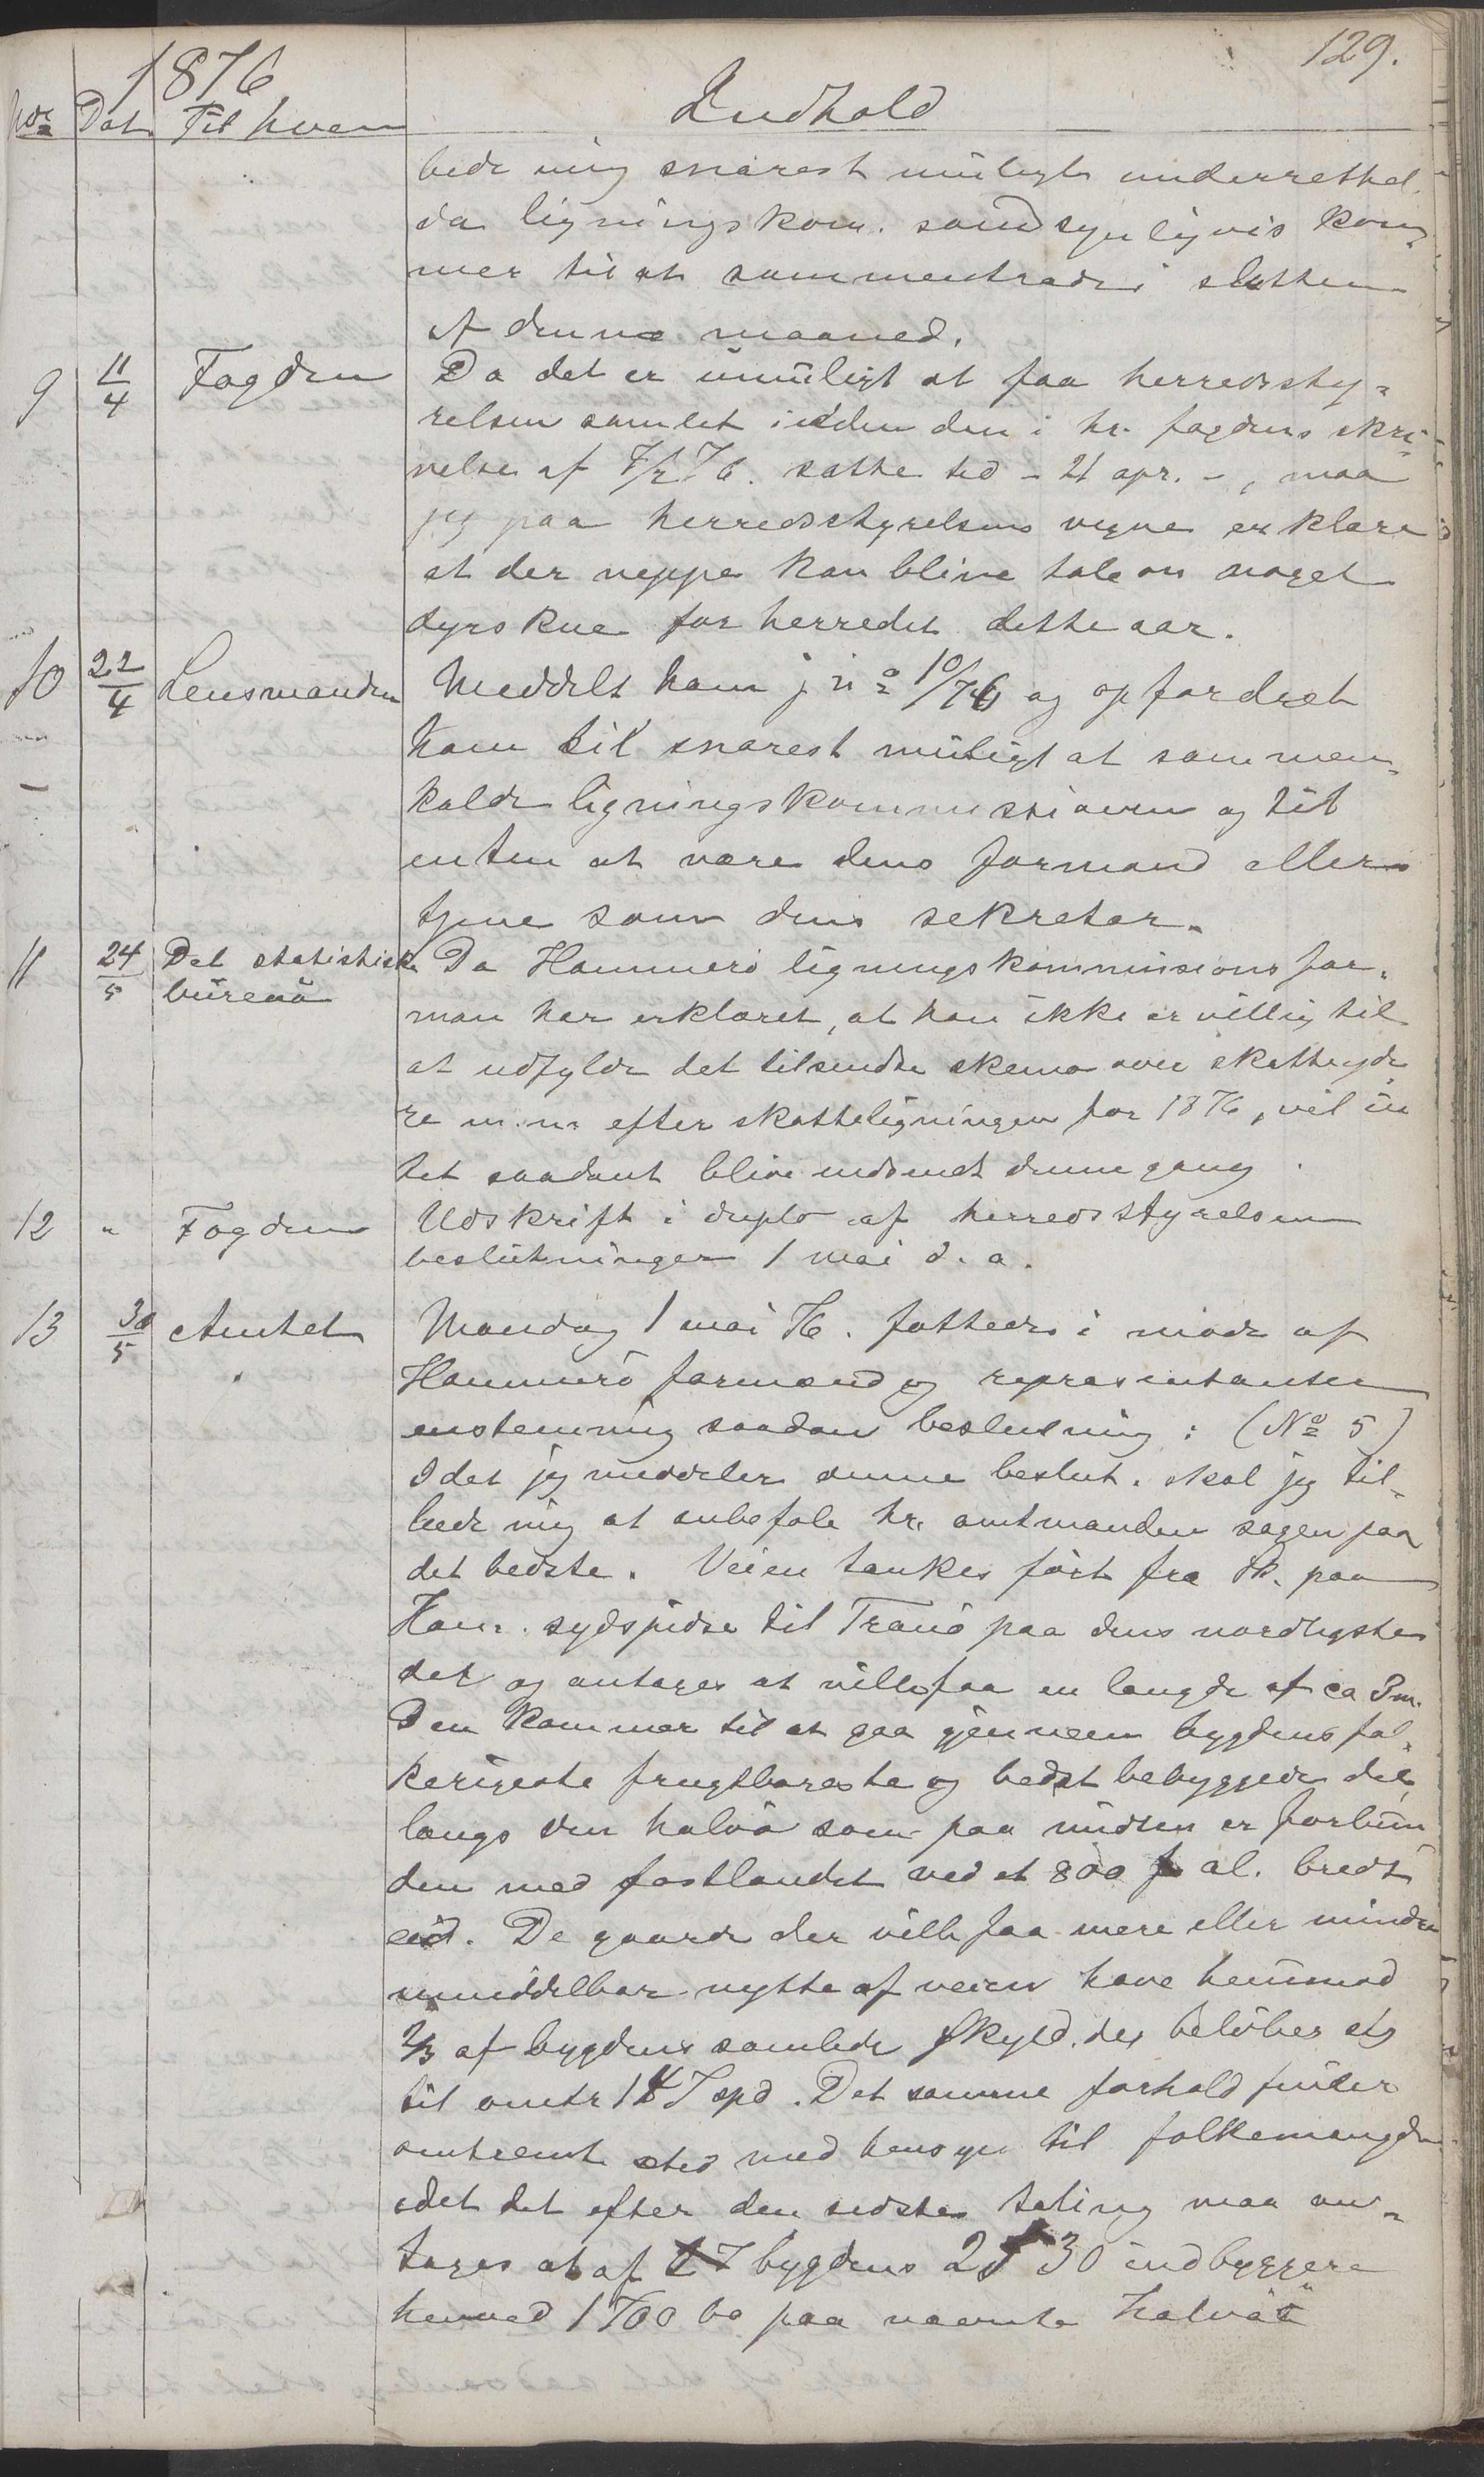 129.
1876
No Dat Til hvem Indhold
bede mig snarest muligt underrettet
da ligningskom. sandsynligvis kom-
mer til at sammentræde i slutten
af denne maaned.
9 11/4 Fogden Da det er umuligt at faa herredssty-
relsen samlet inden den i hr. fogdens skri-
velse af 76. satte tid - 21 apr. -, maa
jeg paa herredsstyrelsens vegne erklære
at der neppe kan blive tale om noget
dyrskue for herredet dette aar.
10 22/4 Lensmanden Meddelt ham j. No 10/76 og opfordret
ham til snarest muligt at sammen-
kalde ligningskommissionen og til
enten at være dens formand eller
tjene som dens sekretær.
11 24/5 Det statistiske bureau Da Hammerö ligningskommissions for-
man har erklæret, at han ikke er villig til
at udfylde det tilsendte skema over skatteyde
re m.m. efter skatteligningen for 1876, vil in
tet saadant blive indsendt denne gang.
12 " Fogden Udskrift i duplo af herredsstyrelsens
beslutninger 1 mai d. a.
13 30/5 Amtet Mandag 1 mai 76. fattedes i möde af
Hammerö formænd og repræsentanter
enstemmig saadan beslutning: (No 5)
Idet jeg meddeler denne beslut. skal jeg til-
lade mig at anbefale hr. amtmanden sagen paa
det bedste. Veien tænkes fört fra Sk. paa
Ham. sydspidse til Tranö paa dens nordligste
del og antages at ville faa en længde af ca 3 m.
Den kommer til at gaa gjennem bygdens fol-
kerigeste frugtbareste og bedst bebyggede del
langs den halvö som paa midten er forbun
den med fastlandet ved et 800 al. bredt
eid. De gaarde der ville faa mere eller mindre
umiddelbar nytte af veien have henimod
2/3 af bygdens samlede skyld, der belöber sig
til omtr 147 spd. Det samme forhold finder
omtrent sted med hensyn til folkemængden
idet det efter den sidste tæling maa an-
tages at af bygdens 2 30 indbyggere
henved 1700 bo paa nævnte halvö